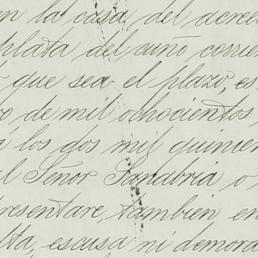 en la casa del acree
plata del cuño corrien
que sea el plazo, es
ro de mil ochocientos
a los dos mil quinien
el Señor Sanabria o
presentare, tambien en
lta, escusa ni demora